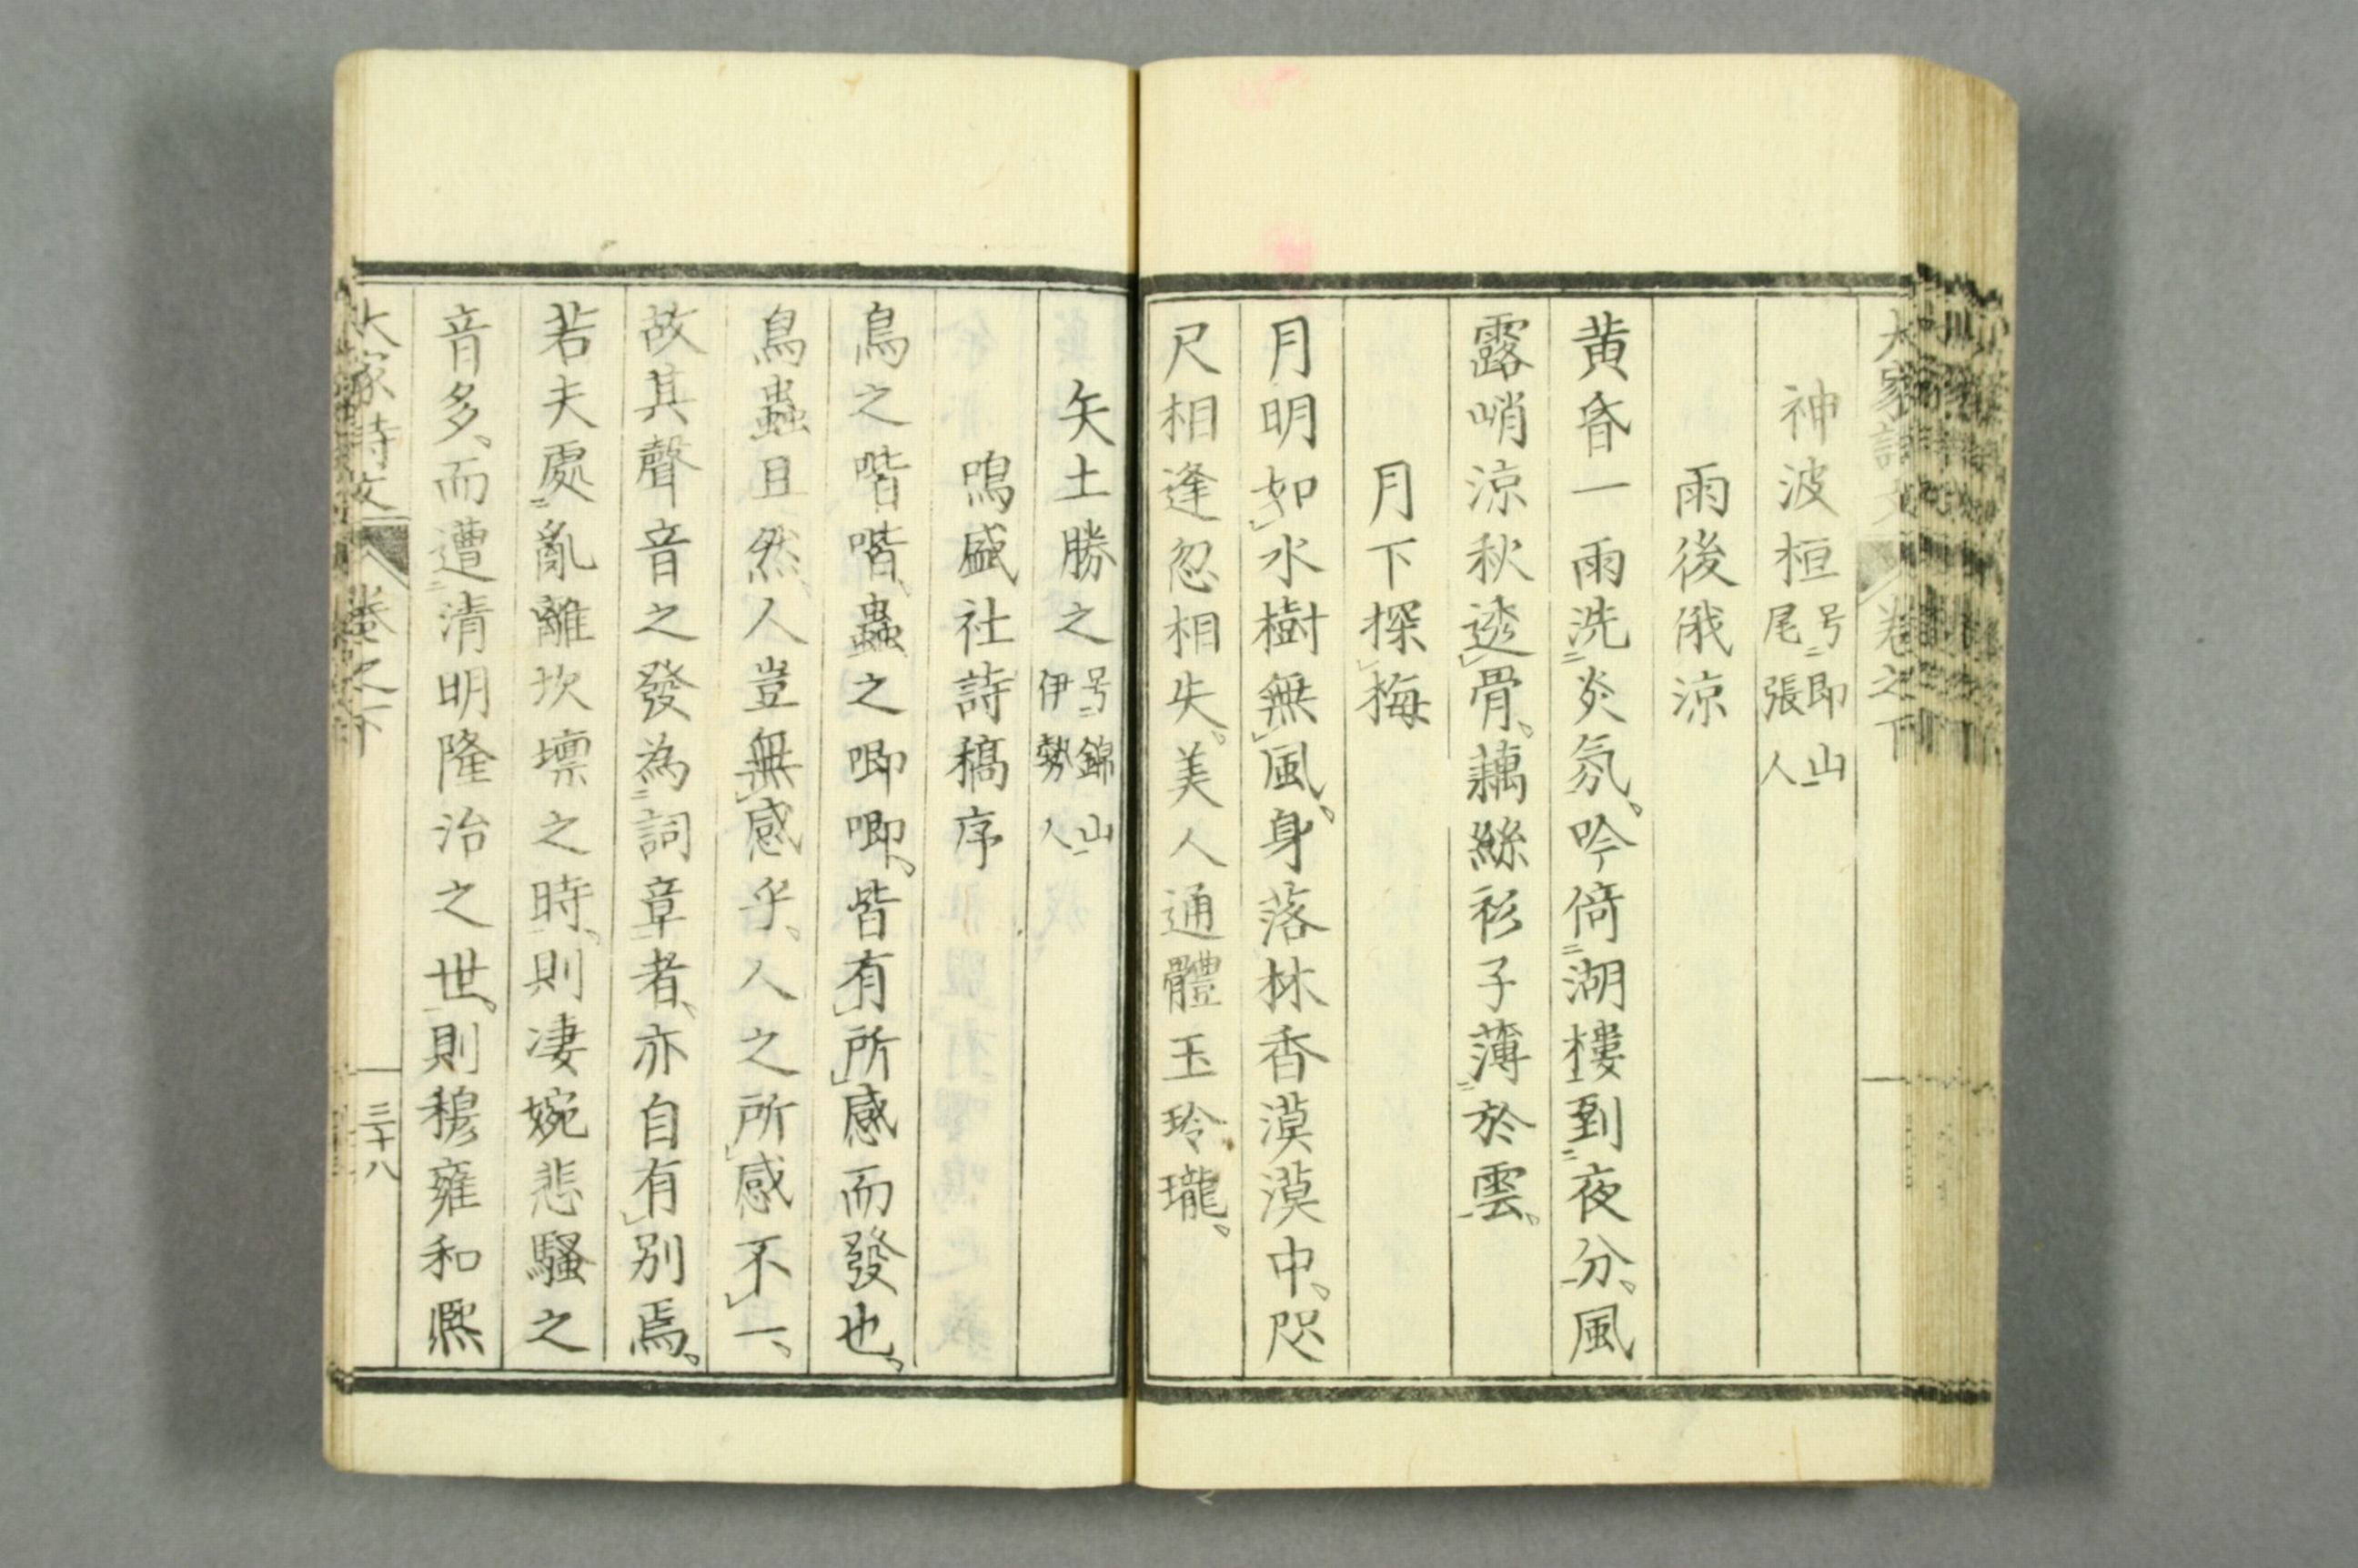 大家詩文 卷之下
神波桓 号即山 尾張人
雨後俄涼
黄昏一雨洗炎氛、吟倚湖樓到夜分、風
露哨涼秋透骨、藕絲衫子薄於雲、
月下探梅
月明如水樹無風、身落林香漠漠中、咫
尺相逢忽相失、美人通體玉玲瓏、
矢土勝之 号錦山 伊勢人
鳴盛社詩稿序
鳥之喈喈、蟲之喞喞、皆有所感而發也、
鳥蟲且然、人豈無感乎、人之所感不一、
故其聲音之發為詞章者、亦自有別焉、
若夫處亂離坎壈之時、則凄婉悲騷之
音多、而遭清明隆治之世、則穆雍和熈
大家詩文 卷之下 三十八